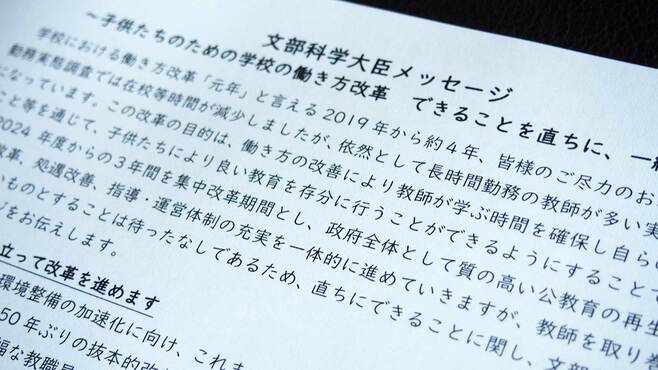 文部科学大臣メッセージ
～子供たちのための学校の働き方改革　できることを直ちに、一
学校における働き方改革「元年」と言える2019年から約4年、皆様のご尽力のお
勤務実態調査では在校等時間が減少しましたが、依然として長時間勤務の教師が多い実
になっています。この改革の目的は、働き方の改善により教師が学ぶ時間を確保し自らの
こと等を通じて、子供たちにより良い教育を存分に行うことができるようにすることで
2024年度からの3年間を集中改革期間とし、政府全体として質の高い公教育の再生
改革、処遇改善、指導・運営体制の充実を一体的に進めていきますが、教師を取り巻
いものとすることは待ったなしであるため、直ちにできることに関し、文部
ジをお伝えします。
立って改革を進めます
環境整備の加速化に向け、これま
50年ぶりの抜本的改
福な教職員